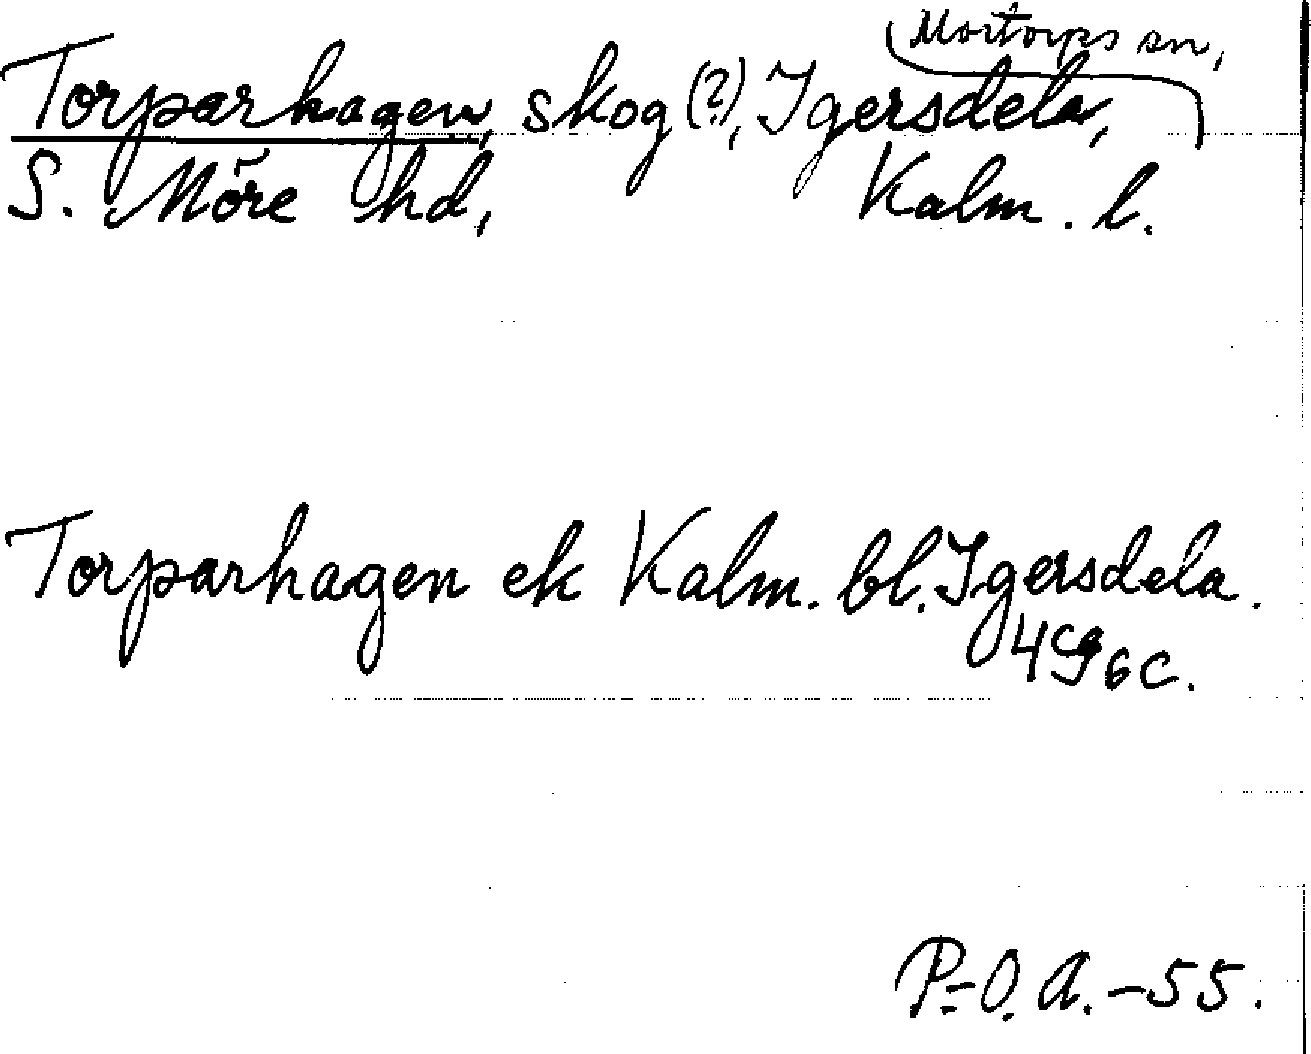 Mortorps sn,
Torparhagen, skog (?), Igersdela,
S. Möre hd, Kalm. l.
Torparhagen ek Kalm. bl. Igersdela.
4G 6c.
P-O. A. -55.